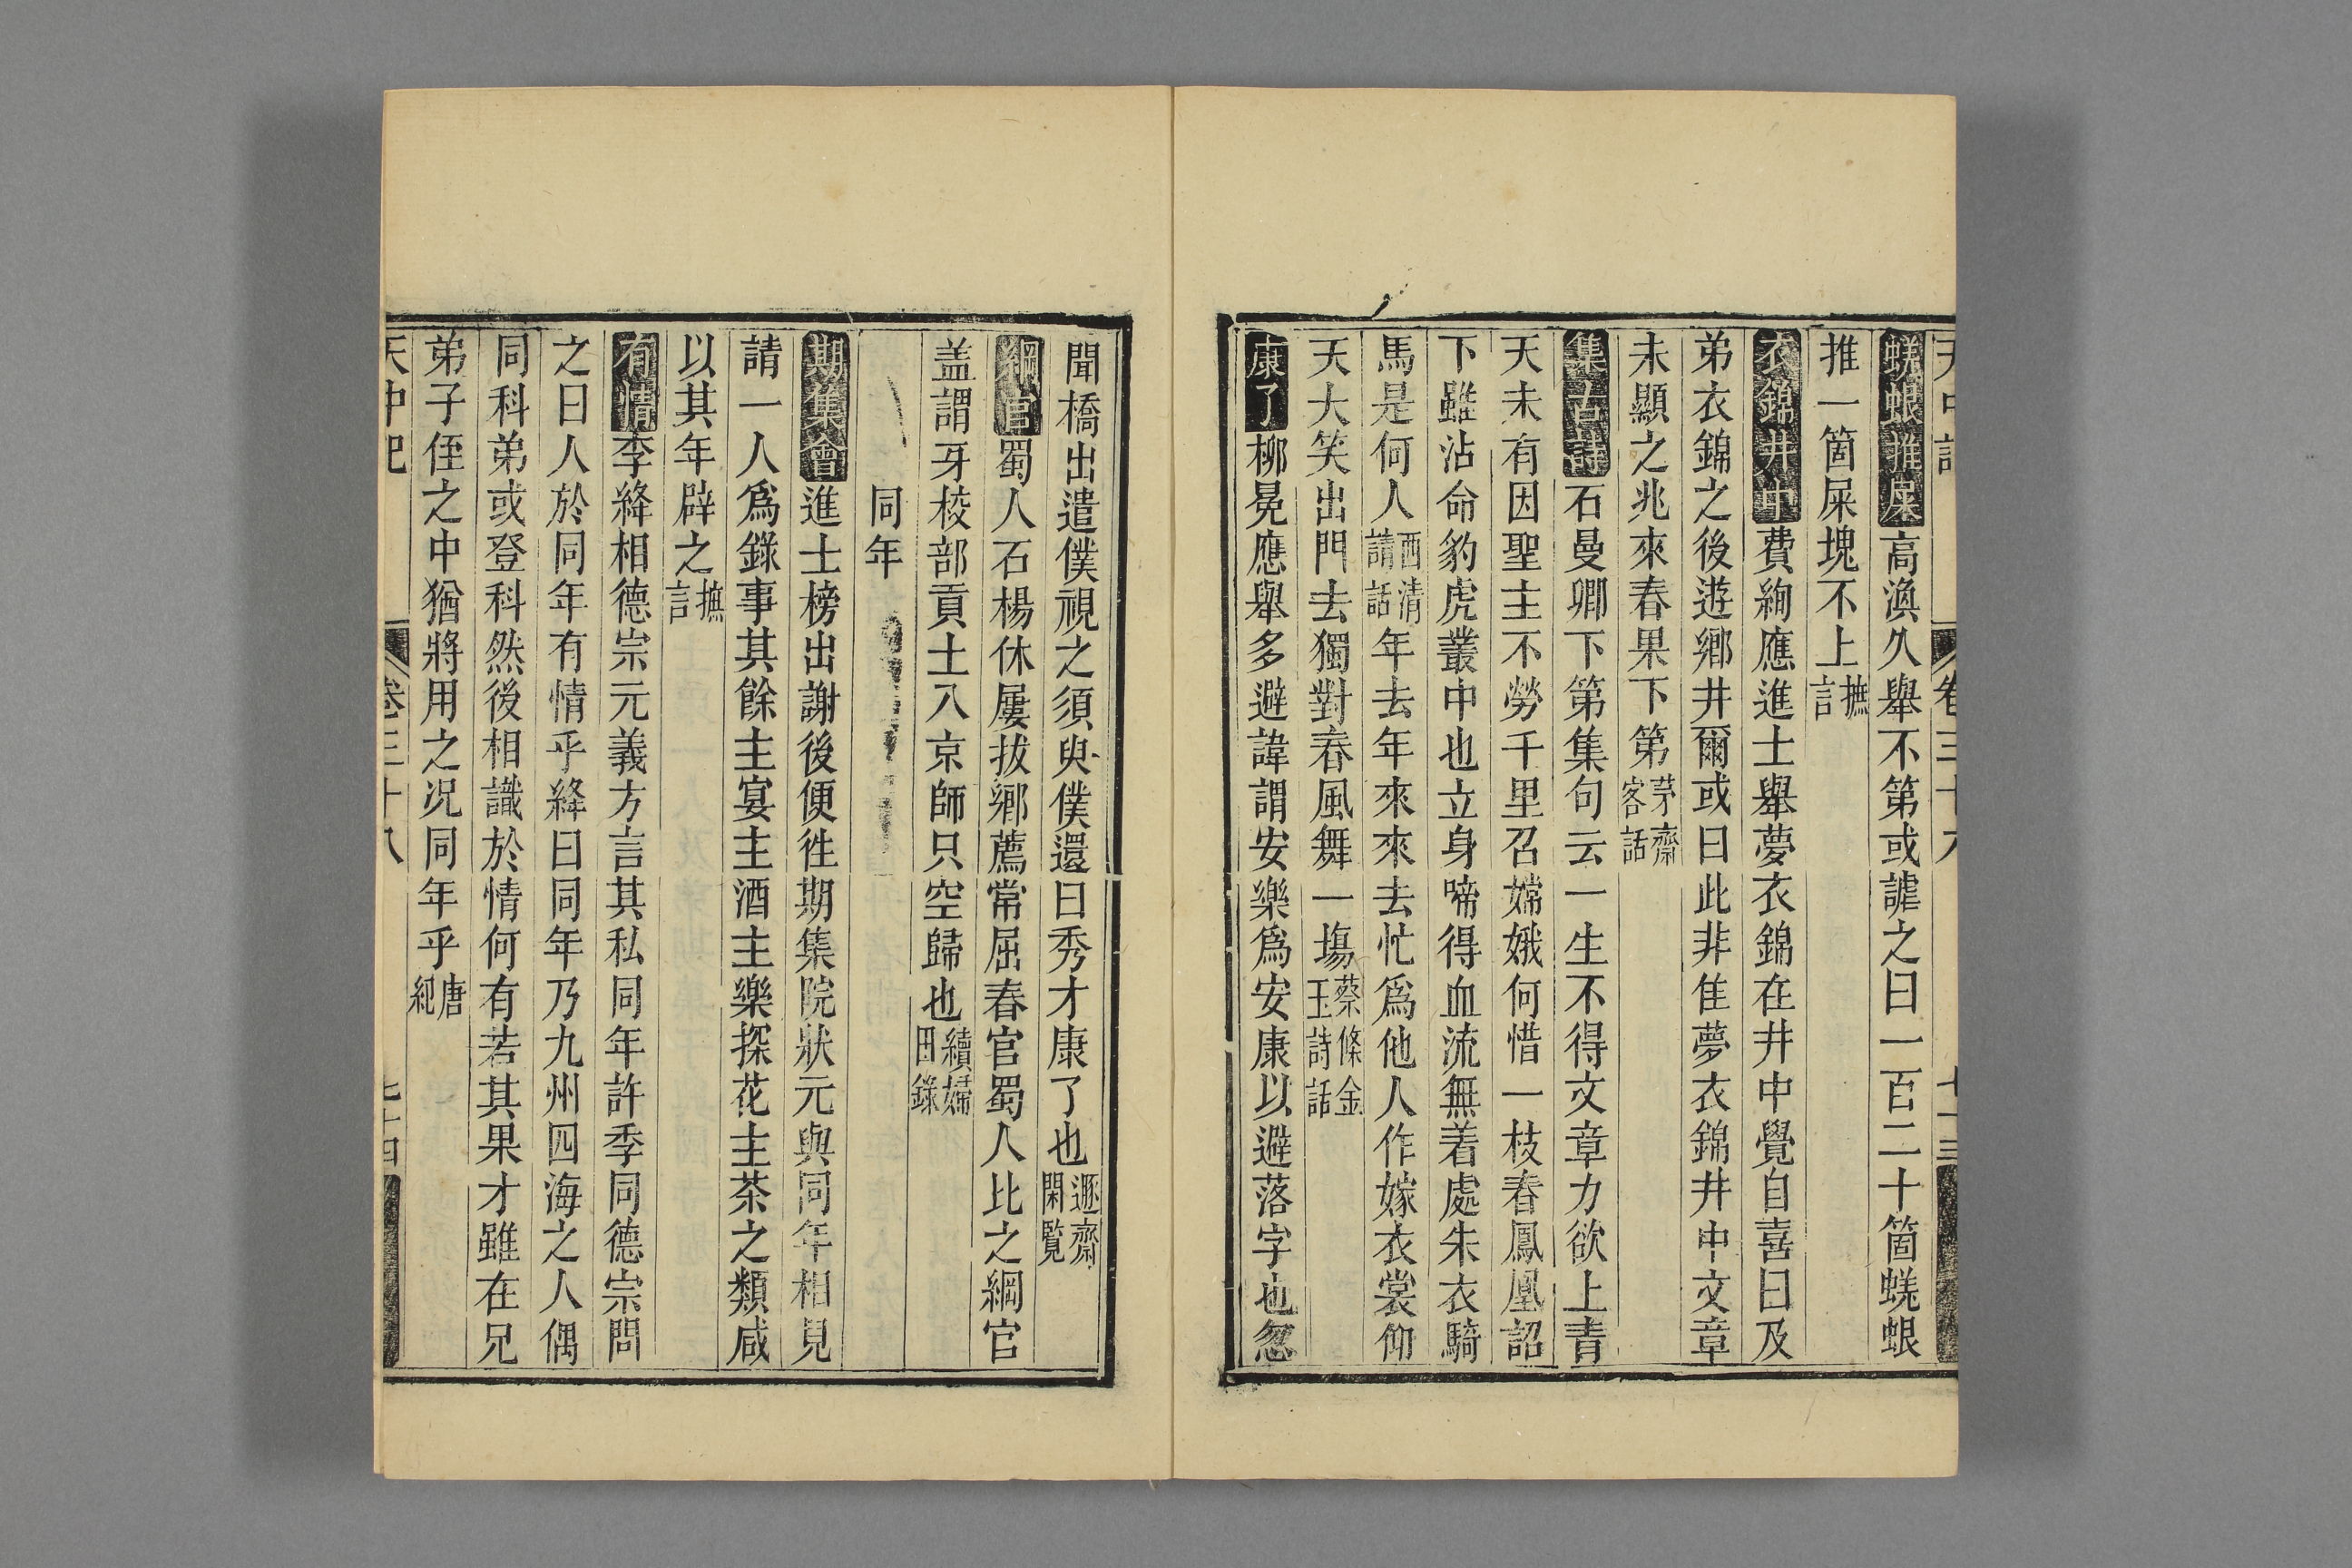 蜣蜋推屎高渙久舉不第或謔之曰一百二十箇蜣蜋
推一箇屎塊不上摭言
衣錦井中費絢應進士舉夢衣錦在井中覺自喜曰及
弟衣錦之後遊鄉井爾或曰此非佳夢衣錦井中文章
未顯之兆來春果下第茅齋客話
集古詩石曼卿下第集句云一生不得文章力欲上青
天未有因聖主不勞千里召嫦娥何惜一枝春鳳凰詔
下雖沾命豹虎叢中也立身啼得血流無着處朱衣騎
馬是何人西清請話年去年來來去忙爲他人作嫁衣裳仰
天大笑出門去獨對春風舞一塲蔡條金玉詩話
康了柳冕應舉多避諱謂安樂爲安康以避落字也忽
聞橋出遣僕視之須臾僕還曰秀才康了也遯齋閑覧
綱官蜀人石楊休屢拔鄉薦常屈春官蜀人比之綱官
盖謂牙梭部貢土入京師只空歸也續歸田錄
同年
期集會進士榜出謝後便徃期集院狀元與同年相見
請一人爲錄事其餘主宴主酒主樂探花主茶之類咸
以其年辟之摭言
有情李絳相德宗元義方言其私同年許季同德宗問
之曰人於同年有情乎絳曰同年乃九州四海之人偶
同科弟或登科然後相識於情何有若其果才雖在兄
弟子侄之中猶將用之况同年乎唐紀
天中記 卷三十八 七十四